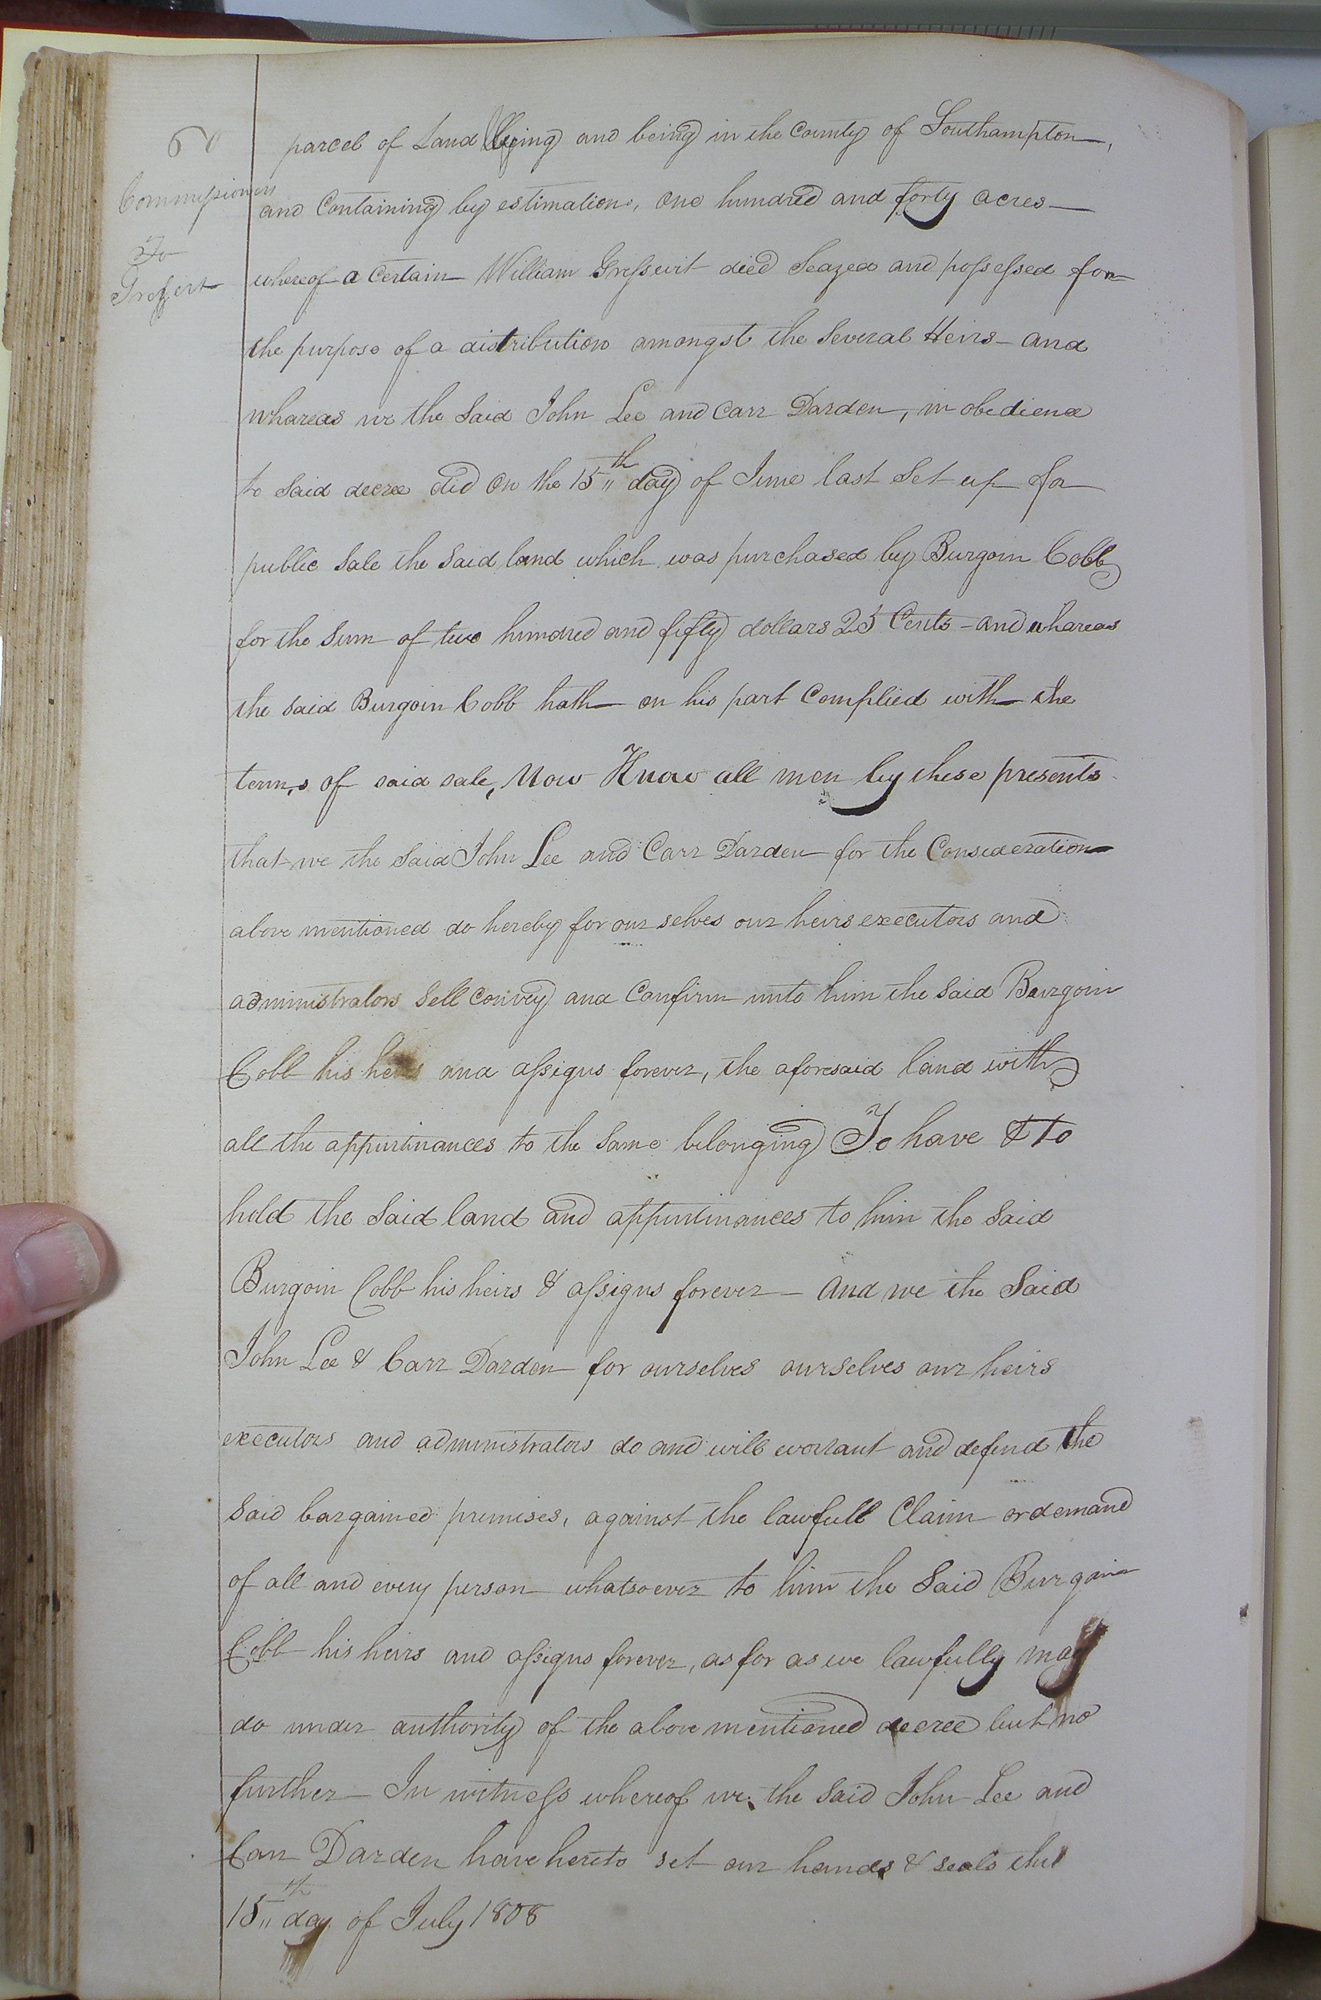 60
Commissioners
To
parcel of Land lying and being in the County of Southampton,
and Containing by estimation, One hundred and forty acres
whereof a Certain William Gressuit died Seazed and possessed for
the purpose of a distribution amongst the Several Heirs and
whareas we the Said John Lee and Carr Darden, in obedience
to Said decree did On the 15th day of June last Set up for
public Sale the Said land which was purchased by Burgoin Cobb
for the Sum of two hundred and fifty dollars 25 Cents - and whareas
the said Burgoin Cobb hath on his part Complied with the
terms of said sale, Now Know all men by these presents
that we the Said John Lee and Carr Darden for the Consideration
above mentioned do hereby for our selves our heirs executors and
administrators Sell Convey and Confirm unto him the Said Burgoin
Cobb his heirs and assigns forever, the aforesaid land with
all the appurtinances to the Same belonging To have & to
hold the Said land and appurtinances to him the Said
Burgoin Cobb his heirs & assigns forever - And we the Said
John Lee & Carr Darden for ourselves ourselves our heirs
executors and administrators do and will warrant and defend the
Said bargained premises, against the lawfull Claim or demand
of all and every person whatsoever to him the Said Burgoin
Cobb his heirs and assigns forever, as far as we lawfully may
do under authority of the above mentioned decree but no
further - In witness whereof we the Said John Lee and
Carr Darden have hereto set our hands & seals this
15th day of July 1808